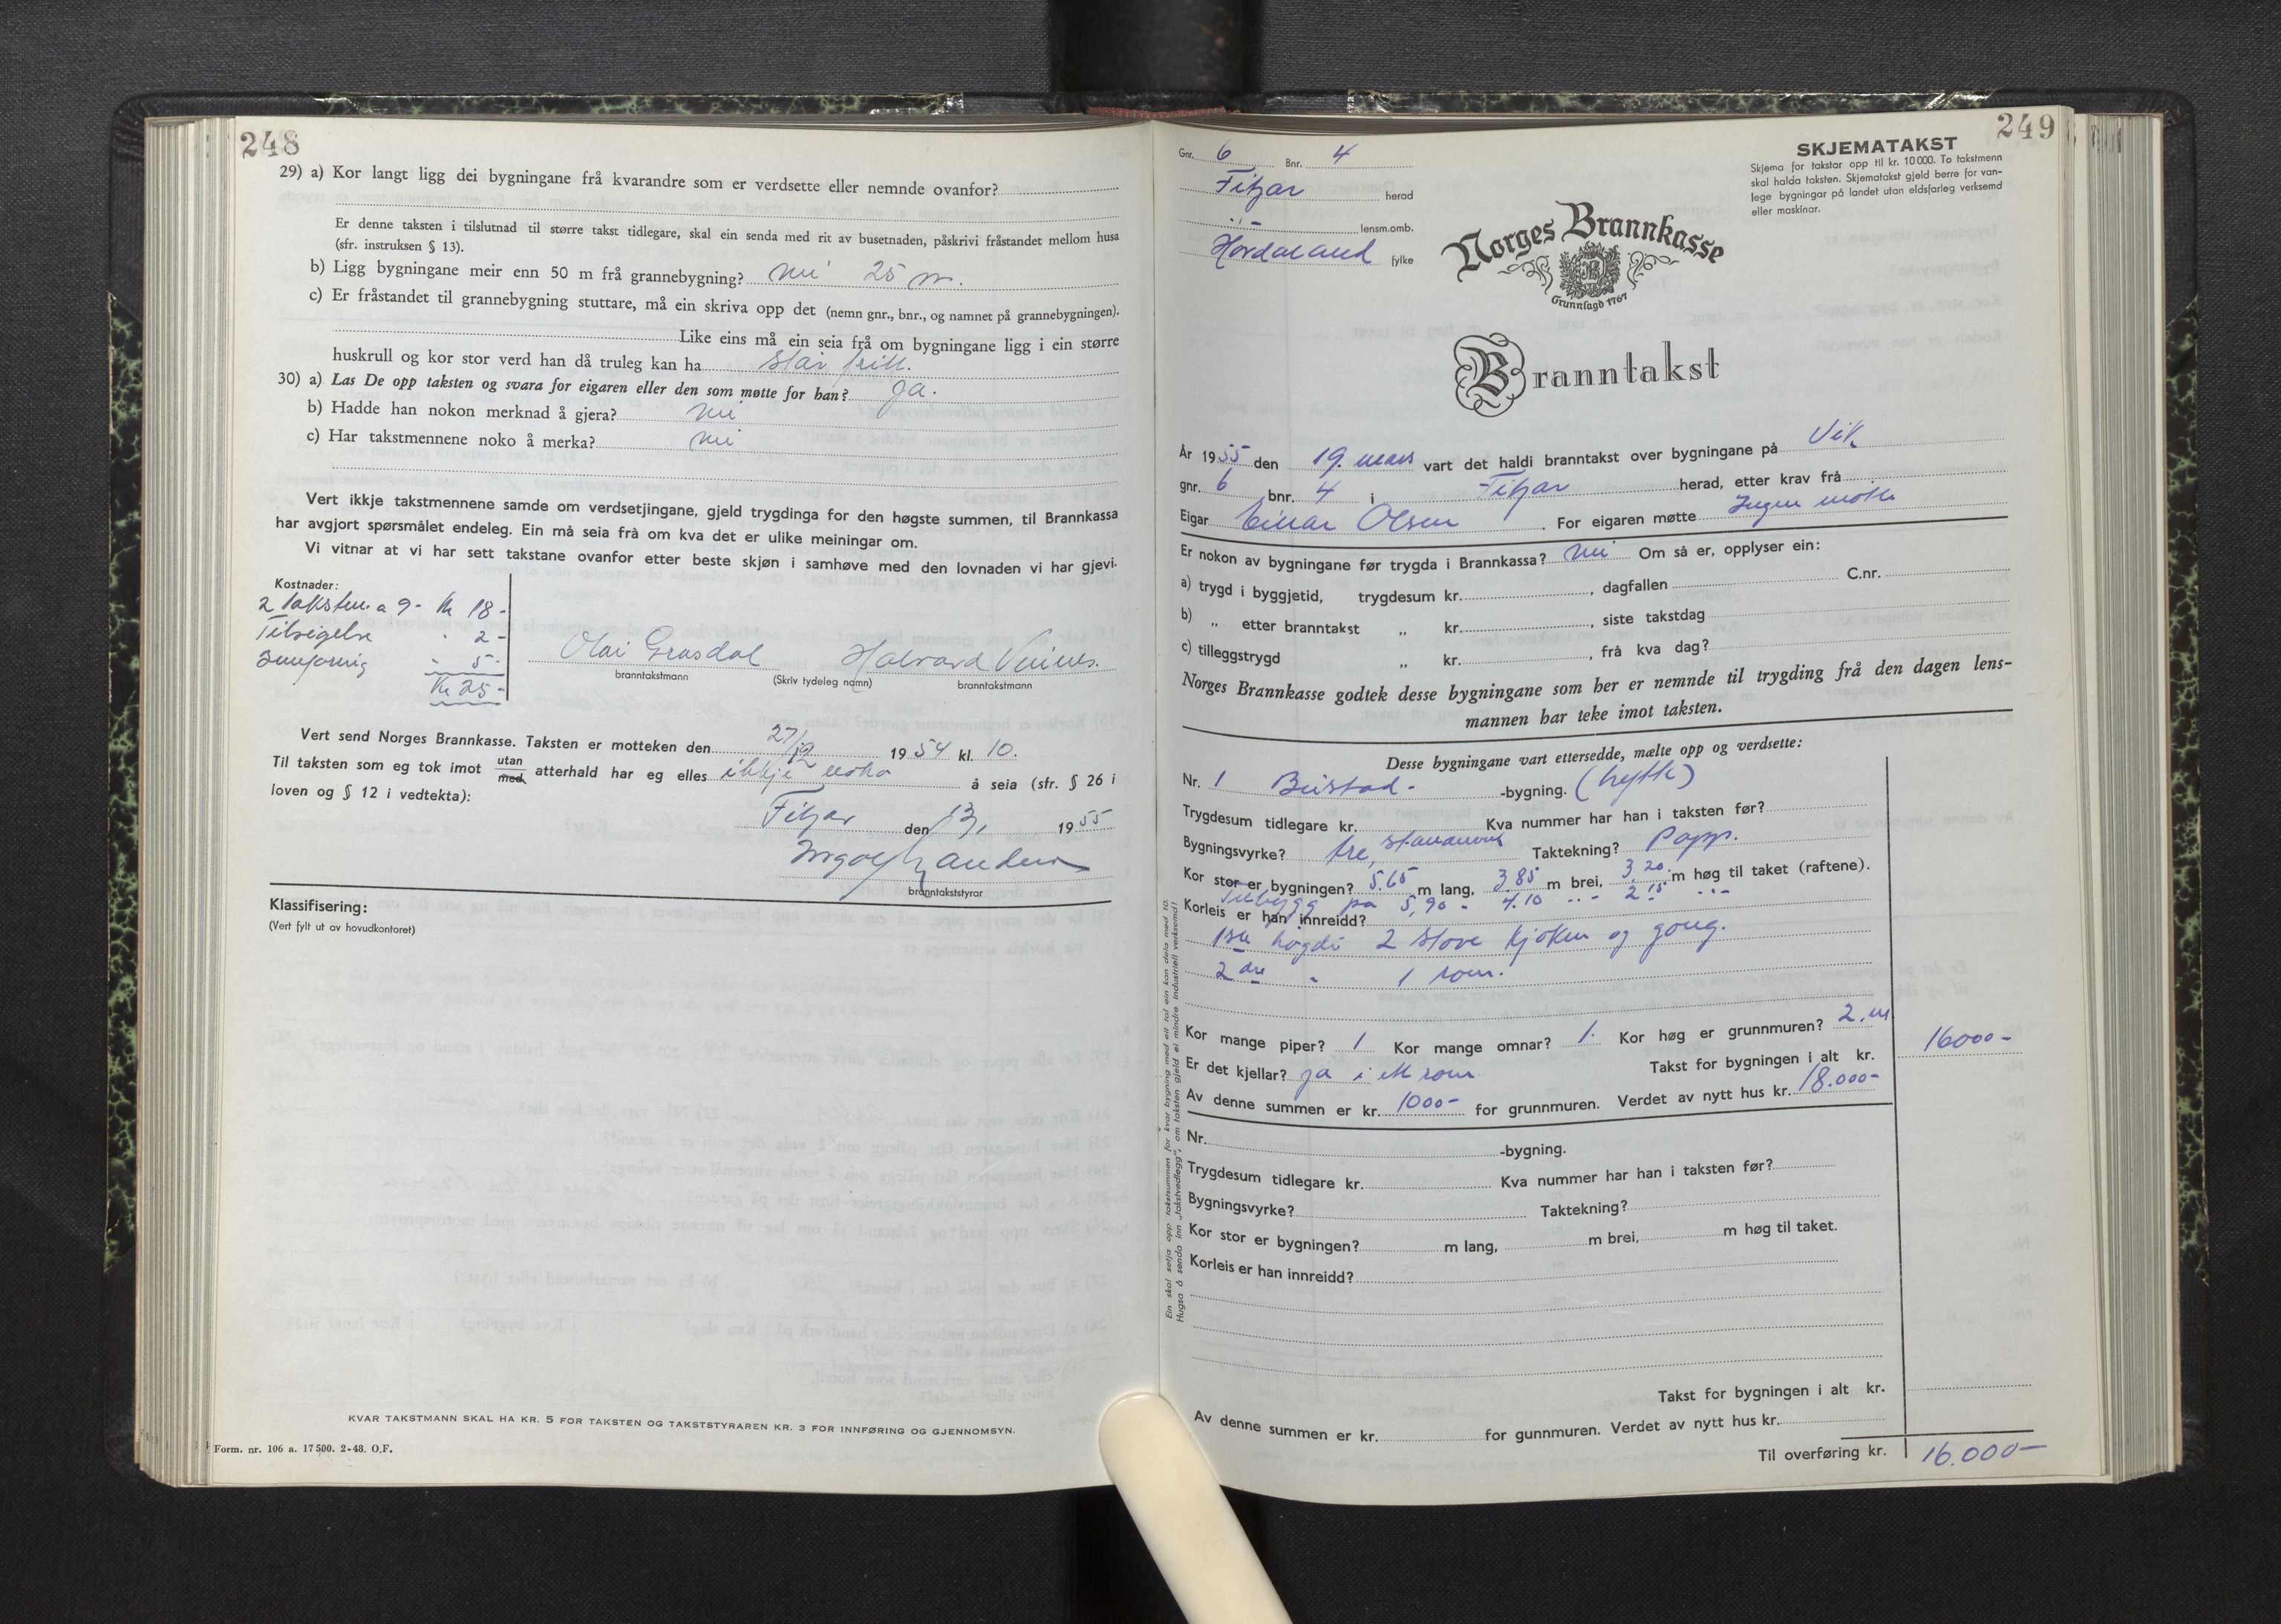 248
29) a) Kor langt ligg dei bygningane frå kvarandre som er verdsette eller nemnde ovanfor?
Er denne taksten i tilslutnad til større takst tidlegare, skal ein senda med rit av busetnaden, påskrivi fråstandet mellom husa
(sfr. instruksen § 13).
b) Ligg bygningane meir enn 50 m frå grannebygning? nei 25 m.
c) Er fråstandet til grannebygning stuttare, må ein skriva opp det (nemn gnr., bnr., og namnet på grannebygningen).
Like eins må ein seia frå om bygningane ligg i ein større
huskrull og kor stor verd han då truleg kan ha står fritt.
30) a) Las De opp taksten og svara for eigaren eller den som møtte for han? ja.
b) Hadde han nokon merknad å gjera? nei
c) Har takstmennene noko å merka? nei
Vert ikkje takstmennene samde om verdsetjingane, gjeld trygdinga for den høgste summen, til Brannkassa
har avgjort spørsmålet endeleg. Ein må seia frå om kva det er ulike meiningar om.
Vi vitnar at vi har sett takstane ovanfor etter beste skjøn i samhøve med den lovnaden vi har gjevi.
Kostnader:
2 takstm. a 9- kr 18-
Tilseigelse " 2-
Innføring " 5-
Kr 25-
Halvard
branntakstmann (Skriv tydeleg namn) branntakstmann
Vert send Norges Brannkasse. Taksten er motteken den 27/12 1954 kl. 10.
Til taksten som eg tok imot utan/med atterhald har eg elles ikkje noko å seia (sfr. § 26 i
loven og § 12 i vedtekta):
Fitjar den 19 55
branntakststyrar
Klassifisering:
(Vert fylt ut av hovudkontoret)
KVAR TAKSTMANN SKAL HA KR. 5 FOR TAKSTEN OG TAKSTSTYRAREN KR. 3 FOR INNFØRING OG GJENNOMSYN.
Form. nr. 106 a. 17 500. 2-48. O.F.
249
Gnr. 6 Bnr. 4
Fitjar herad
" - lensm.omb.
Hordaland fylke
SKJEMATAKST
Skjema for takstar opp til kr. 10 000. To takstmenn
skal halda taksten. Skjematakst gjeld berre for van-
lege bygningar på landet utan eldsfarleg verksemd
eller maskinar.
Norges Brannkasse
Grunnlagd 1767
Branntakst
År 1955 den 19. mars vart det haldi branntakst over bygningane på Vik
gnr. 6 bnr. 4 i Fitjar herad, etter krav frå
Eigar Einar Olsen. For eigaren møtte Ingen møtte
Er nokon av bygningane før trygda i Brannkassa? nei Om så er, opplyser ein:
a) trygd i byggjetid, trygdesum kr. , dagfallen C.nr.
b) „ etter branntakst „ kr. , siste takstdag
c) tilleggstrygd „ kr. , frå kva dag?
Norges Brannkasse godtek desse bygningane som her er nemnde til trygding frå den dagen lens-
mannen har teke imot taksten.
Desse bygningane vart ettersedde, mælte opp og verdsette:
Nr. 1 Bustad- -bygning. (hytte)
Trygdesum tidlegare kr. Kva nummer har han i taksten før?
Bygningsvyrke? tre, Taktekning? Papp.
Kor stor er bygningen? 5.65 m lang, 3.85 m brei, 3,20 m høg til taket (raftene).
Tilbygg på 5,90 - 4.10 " - 2.15 " -
Korleis er han innreidd?
1ste høgdi 2 stove kjøken og gong.
2dre " 1 rom.
Kor mange piper? 1 Kor mange omnar? 1. Kor høg er grunnmuren? 2.m
Er det kjellar? ja i ett rom. Takst for bygningen i alt kr. 16000-
Av denne summen er kr. 1000- for grunnmuren. Verdet av nytt hus kr. 18.000-
Nr. -bygning.
Trygdesum tidlegare kr. Kva nummer har han i taksten før?
Bygningsvyrke? Taktekning?
Kor stor er bygningen? m lang, m brei, m høg til taket.
Korleis er han innreidd?
Takst for bygningen i alt kr.
Av denne summen er kr. for gunnmuren. Verdet av nytt hus kr.
Til overføring kr. 16.000-
Ein skal setja opp takstsummen for kvar bygning med eit tal ein kan dela med 10.
Hugsa å senda inn „takstvedlegg", om taksten gjeld ei mindre industriell verksemd!